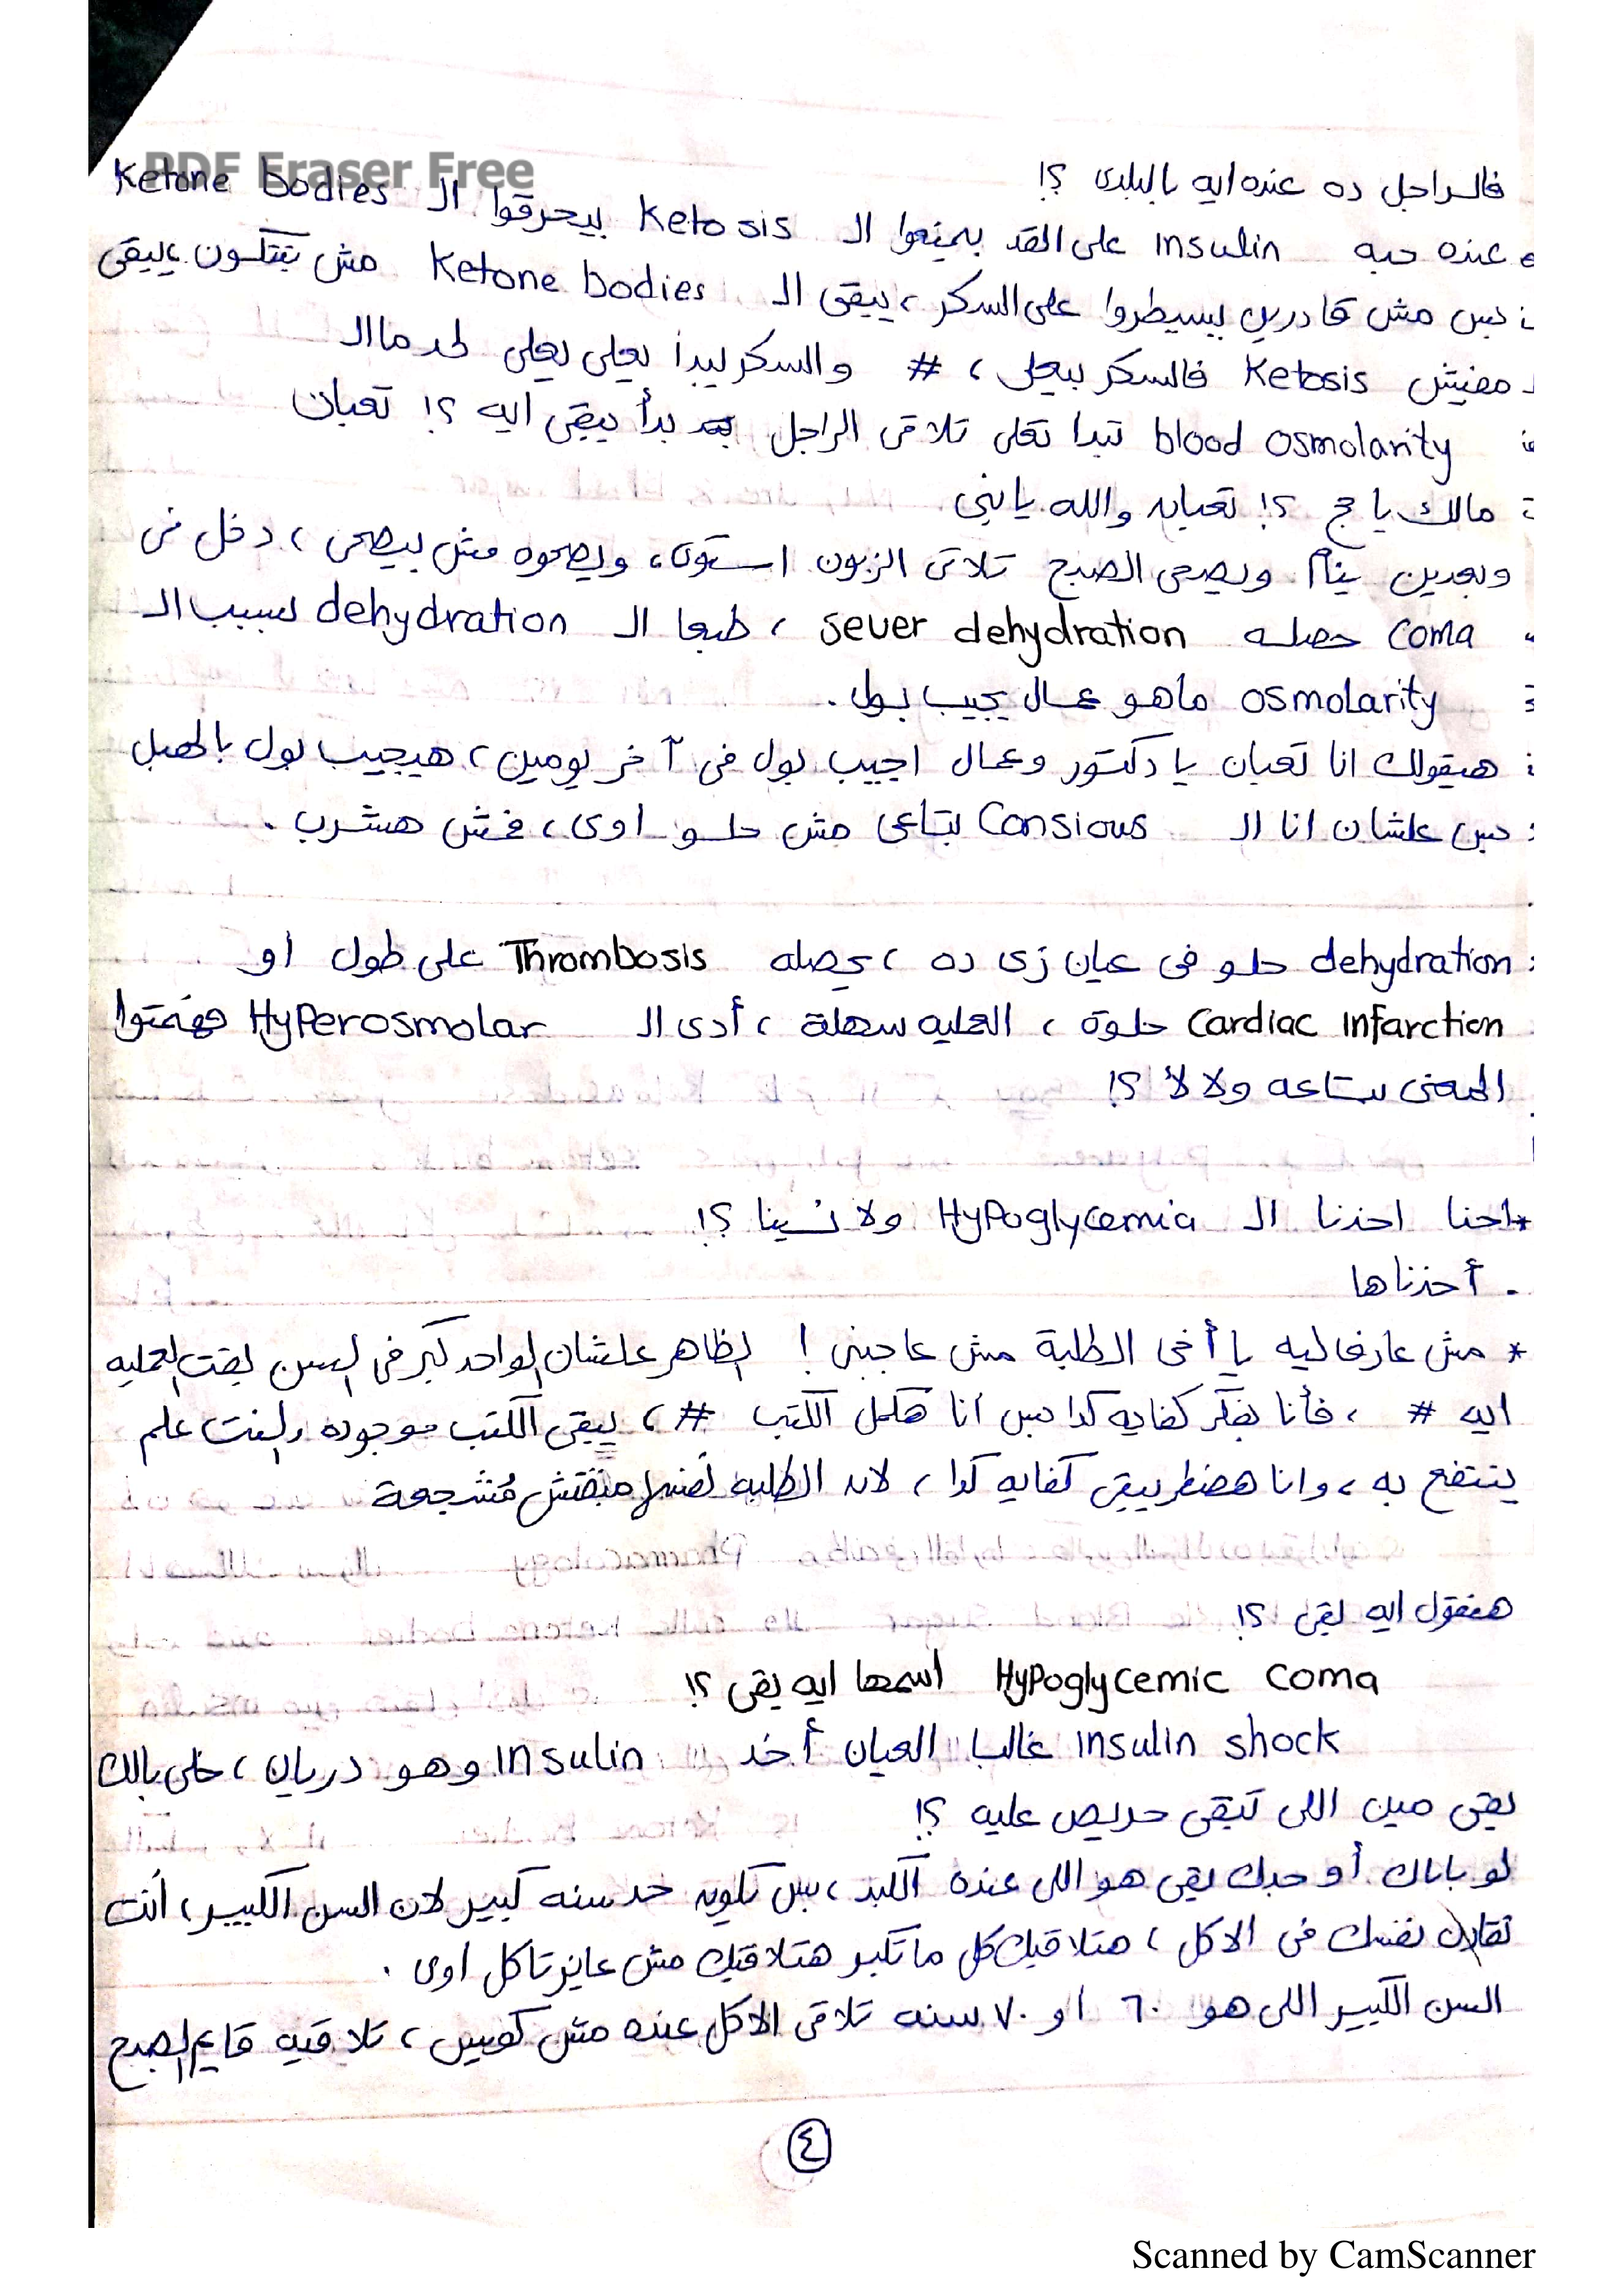 PDF Eraser Free
فالراجل ده عنده ايه بالبلدى ؟!
عنده حبه insulin على القد بيمنعوا الـ Ketosis بيحرقوا الـ Ketone bodies
بس مش قادرين يسيطروا على السكر ، يبقى الـ Ketone bodies مش بتتكون يبقى
مفيش Ketosis فالسكر بيعلى ، # والسكر يبدأ يعلى يعلى لحد ما الـ
blood osmolarity تبدا تعلى تلاقى الراجل بدأ يبقى ايه ؟! تعبان
مالك يا حج ؟! تعبان والله يا بنى
وبعدين ينام ويصحى الصبح تلاقى الزبون استوى ، ويصحوه مش بيصحى ، دخل فى
coma حصله sever dehydration ، طبعا الـ dehydration بسبب الـ
osmolarity ماهو عمال يجيب بول .
هيقولك انا تعبان يا دكتور وعمال اجيب بول فى آخر يومين ، هيجيب بول بالهبل
بس علشان انا الـ Consious بتاعى مش حلو اوى ، فمش هشرب .
dehydration حلو فى عيان زى ده ، يحصله Thrombosis على طول أو
Cardiac infarction حلوة ، العمليه سهلة ، أدى الـ HyPerosmolar فهمتوا
المعنى بتاعه ولا لأ ؟!
*احنا اخدنا الـ HyPoglycemia ولا نسينا ؟!
. أخدناها
* مش عارف ليه يا أخى الطلبة مش عاجبنى ! الظاهر علشان الواحد كبر فى السن بقت العمليه
ايه # ، فأنا بفكر كفايه كدا بس انا هكمل الكتب # ، يبقى الكتب موجوده وبقت علم
ينتفع به ، وانا هضطر يبقى كفايه كدا ، لان الطلبه نفسها مبقتش مُشجعة
هنقول ايه بقى ؟!
HyPoglycemic coma اسمها ايه بقى ؟!
insulin shock غالبا العيان أخد insulin وهو دريان ، خلى بالك
بقى مين اللى تبقى حريص عليه ؟!
لو باباك أو جدك بقى هو اللى عنده الكبد ، بس تكون حد سنه كبير لان السن الكبير ، أنت
نفسك فى الاكل ، هتلاقيك كل ما تكبر هتلاقيك مش عايز تاكل اوى .
السن الكبير اللى هو ٦٠ او ٧٠ سنه تلاقى الاكل عنده مش كويس ، تلاقيه قايم الصبح
٤
Scanned by CamScanner